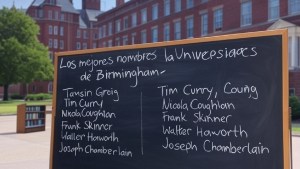 Los mejores nombres la Universiades
de Birmingham-
Tamsin Greig
Tim Curry
Nikola Coughlan
Frank Skinner
Waller Haworth
Joseph Chamberlain
Tim Curry, Coung
Nicola Coughlan
Frank Skinner
Walter Howorth
Joseph Chamberlain